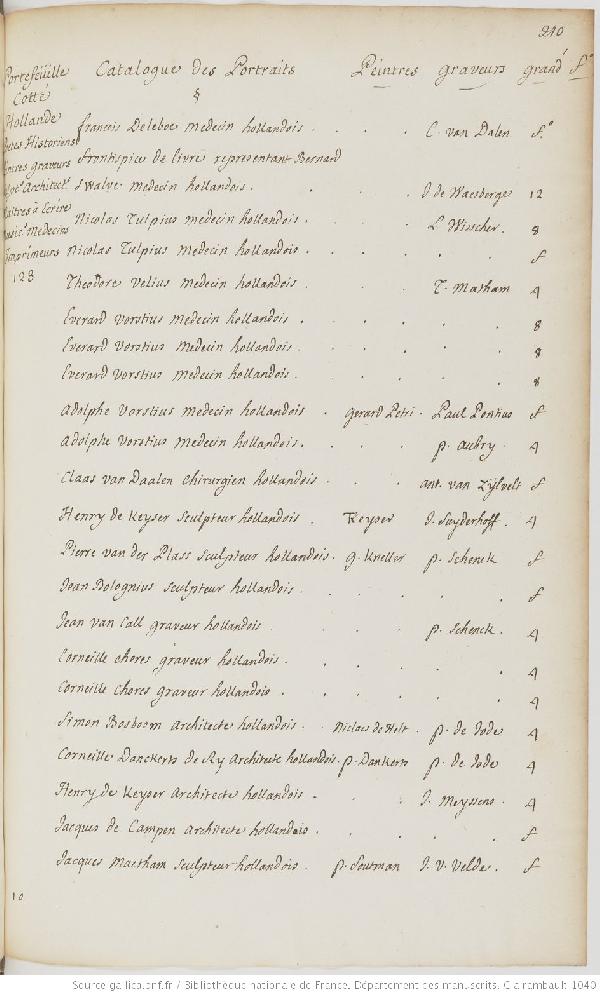 210
Portefeüille Catalogue des Portraits Peintres graveurs grandr fo
Cotté §
Hollande
Poetes Historiens francois Deleboe medecin hollandois . . . . C. van Dalen fo
Peintres graveurs frontispice de livre representant Bernard
Swalve medecin hollandois . . . J de Waesberge 12
Maîtres à Ecrire Nicolas Tulpius medecin hollandois . . . L Wisscher . 8
Medecins
Imprimeurs Nicolas Tulpius medecin hollandois . . . . . f
128 Theodore Velius medecin hollandois . . . T. Matham 4
Everard Vorstius medecin hollandois . . . . . 8
Everard Vorstius medecin hollandois . . . . . 8
Everard Vorstius medecin hollandois . . . . . 8
Adolphe Vorstius medecin hollandois . gerard Petri . Paul Pontius f
Adolphe Vorstius medecin hollandois . . . p. Aubry . 4
Claas van Daalen chirurgien hollandois . . . ant. van Zÿlvelt f
Henry de Keyser sculpteur hollandois . Keyser J. Suyderhoff . 4
Pierre van der Plass sculpteur hollandois . g. Kneller p. Schenck f
Jean Bolognius sculpteur hollandois . . . . . f
Jean van Call graveur hollandois . . . p. Schenck . 4
Corneille chores graveur hollandois . . . . . 4
Corneille chores graveur hollandois . . . . . 4
Simon Bosboom architecte hollandois . Niclaes de Helt . p. de Jode 4
Corneille Danckerts de Ry Architecte hollandois . p. Dankerts p. de Jode 4
Henry de Keyser architecte hollandois . . . J. Meyssens . 4
Jacques de Campen architecte hollandois . . . . . f
Jacques Matham sculpteur hollandois . p. Soutman J. V. Velde . f
10
Source gallica.bnf.fr / Bibliothèque nationale de France. Département des manuscrits. Clairambault 1040